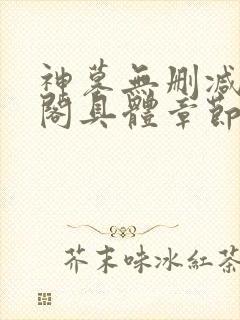 神墓無刪減
閣具體章節
芥末味冰紅茶